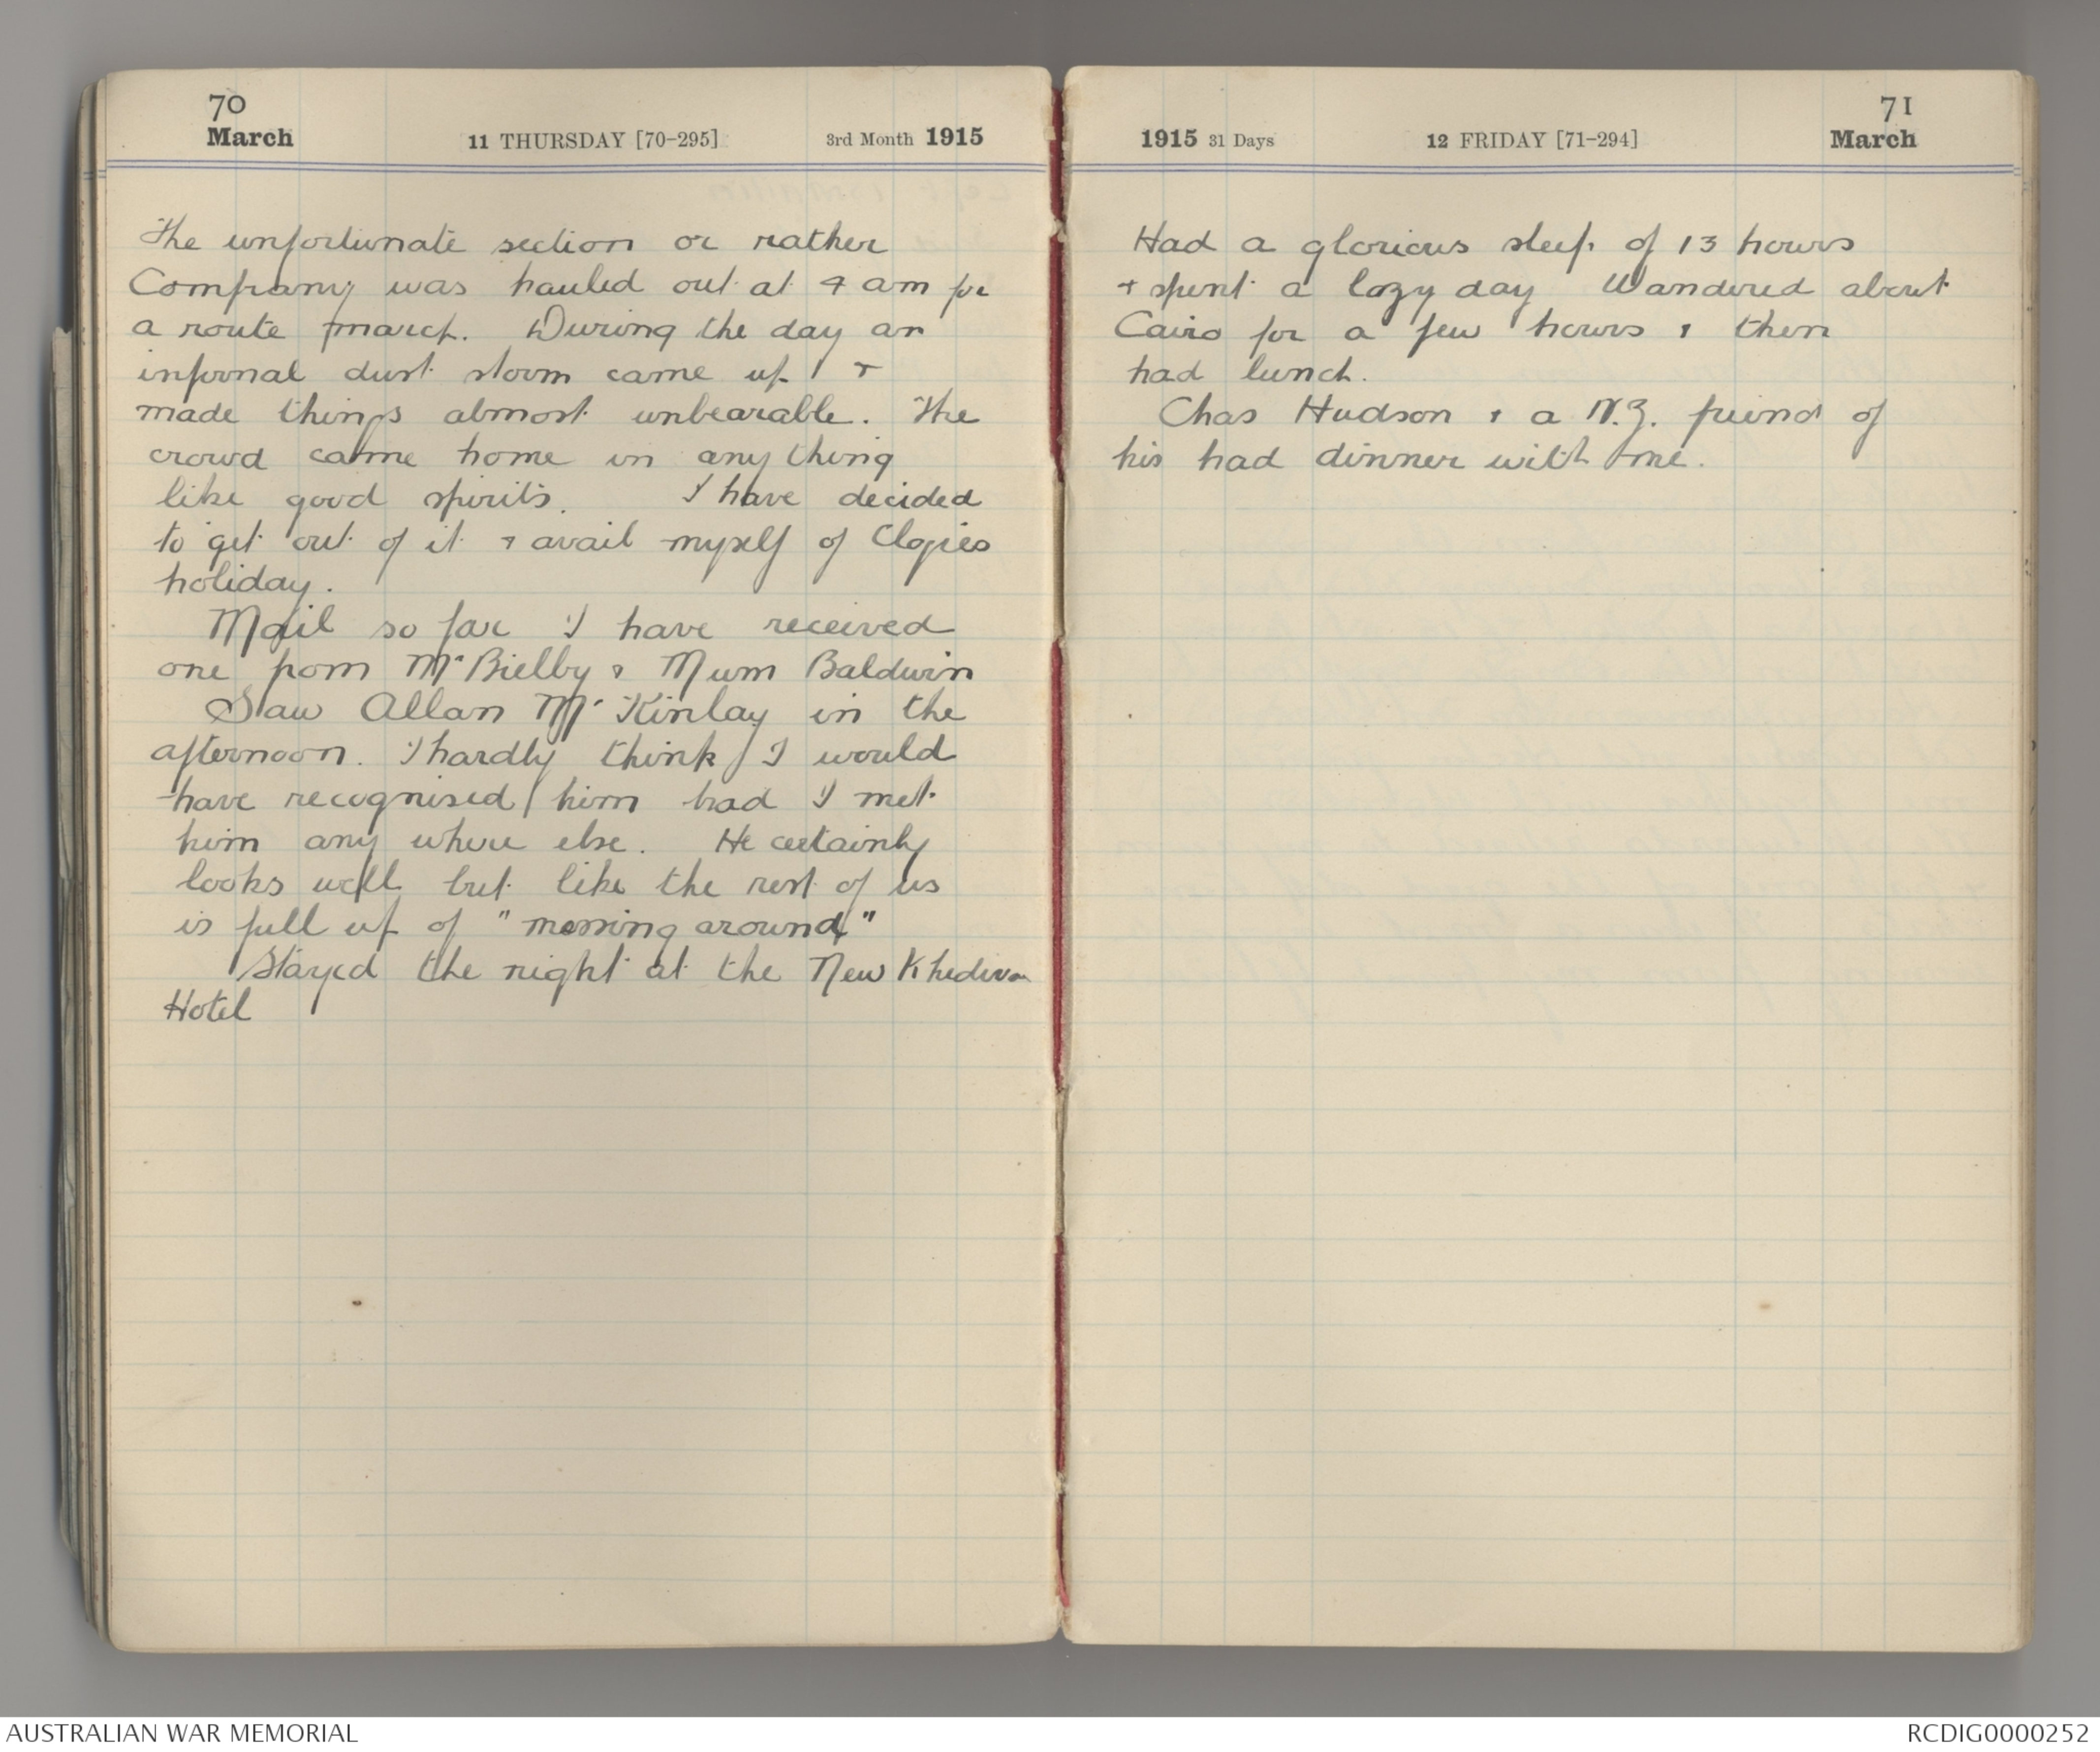 70
March
11 THURSDAY [70-295]
3rd Month 1915
The unfortunate section or rather
Company was hauled out at 4 am for
a route march. During the day an
infernal dust storm came up &
made things almost unbearable. The
crowd came home in any thing
like good spirits. I have decided
to get out of it & avail myself of
holiday.
Mail so far I have received
one from Mr Bielby & Mum Baldwin
Saw Allan McKinlay in the
afternoon. I hardly think I would
have recognised him had I met
him any where else. He certainly
looks well but like the rest of us
is full up of "messing around"
Stayed the night at the New
Hotel
1915 31 Days
12 FRIDAY [71-294]
71
March
Had a glorious sleep of 13 hours
+ spent a lazy day Wandered about
Cairo for a few hours & then
had lunch.
Chas Hudson & a N.Z. friend of
his had dinner with me.
AUSTRALIAN WAR MEMORIAL
RCDIG0000252